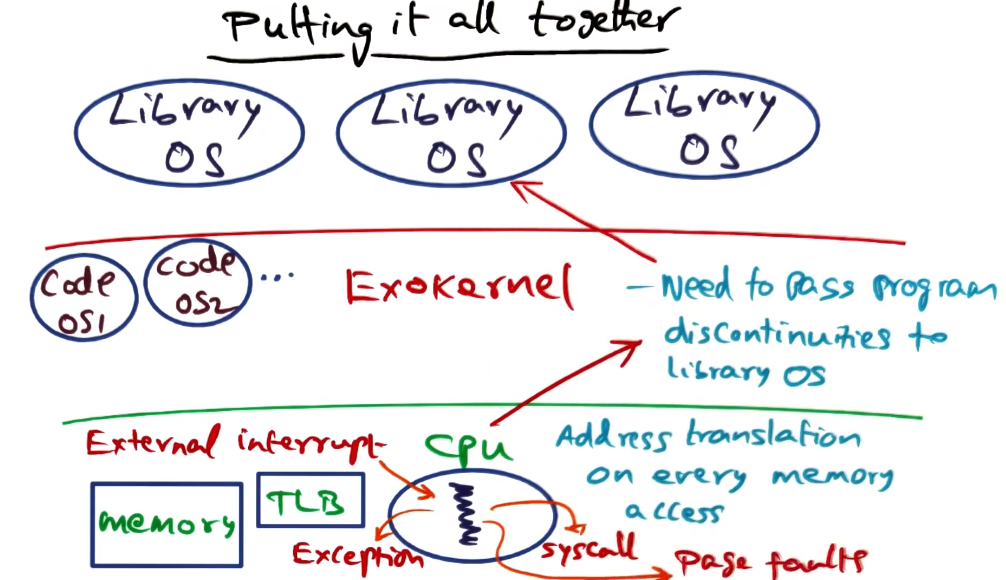 Putting it all together
Library
OS
Library
OS
Library
OS
Code
OS1
Code
OS2
...
Exokernel
- Need to pass program
discontinuities to
library OS
External interrupt
CPU
Address translation
on every memory
access
memory
TLB
Exception
syscall
page faults